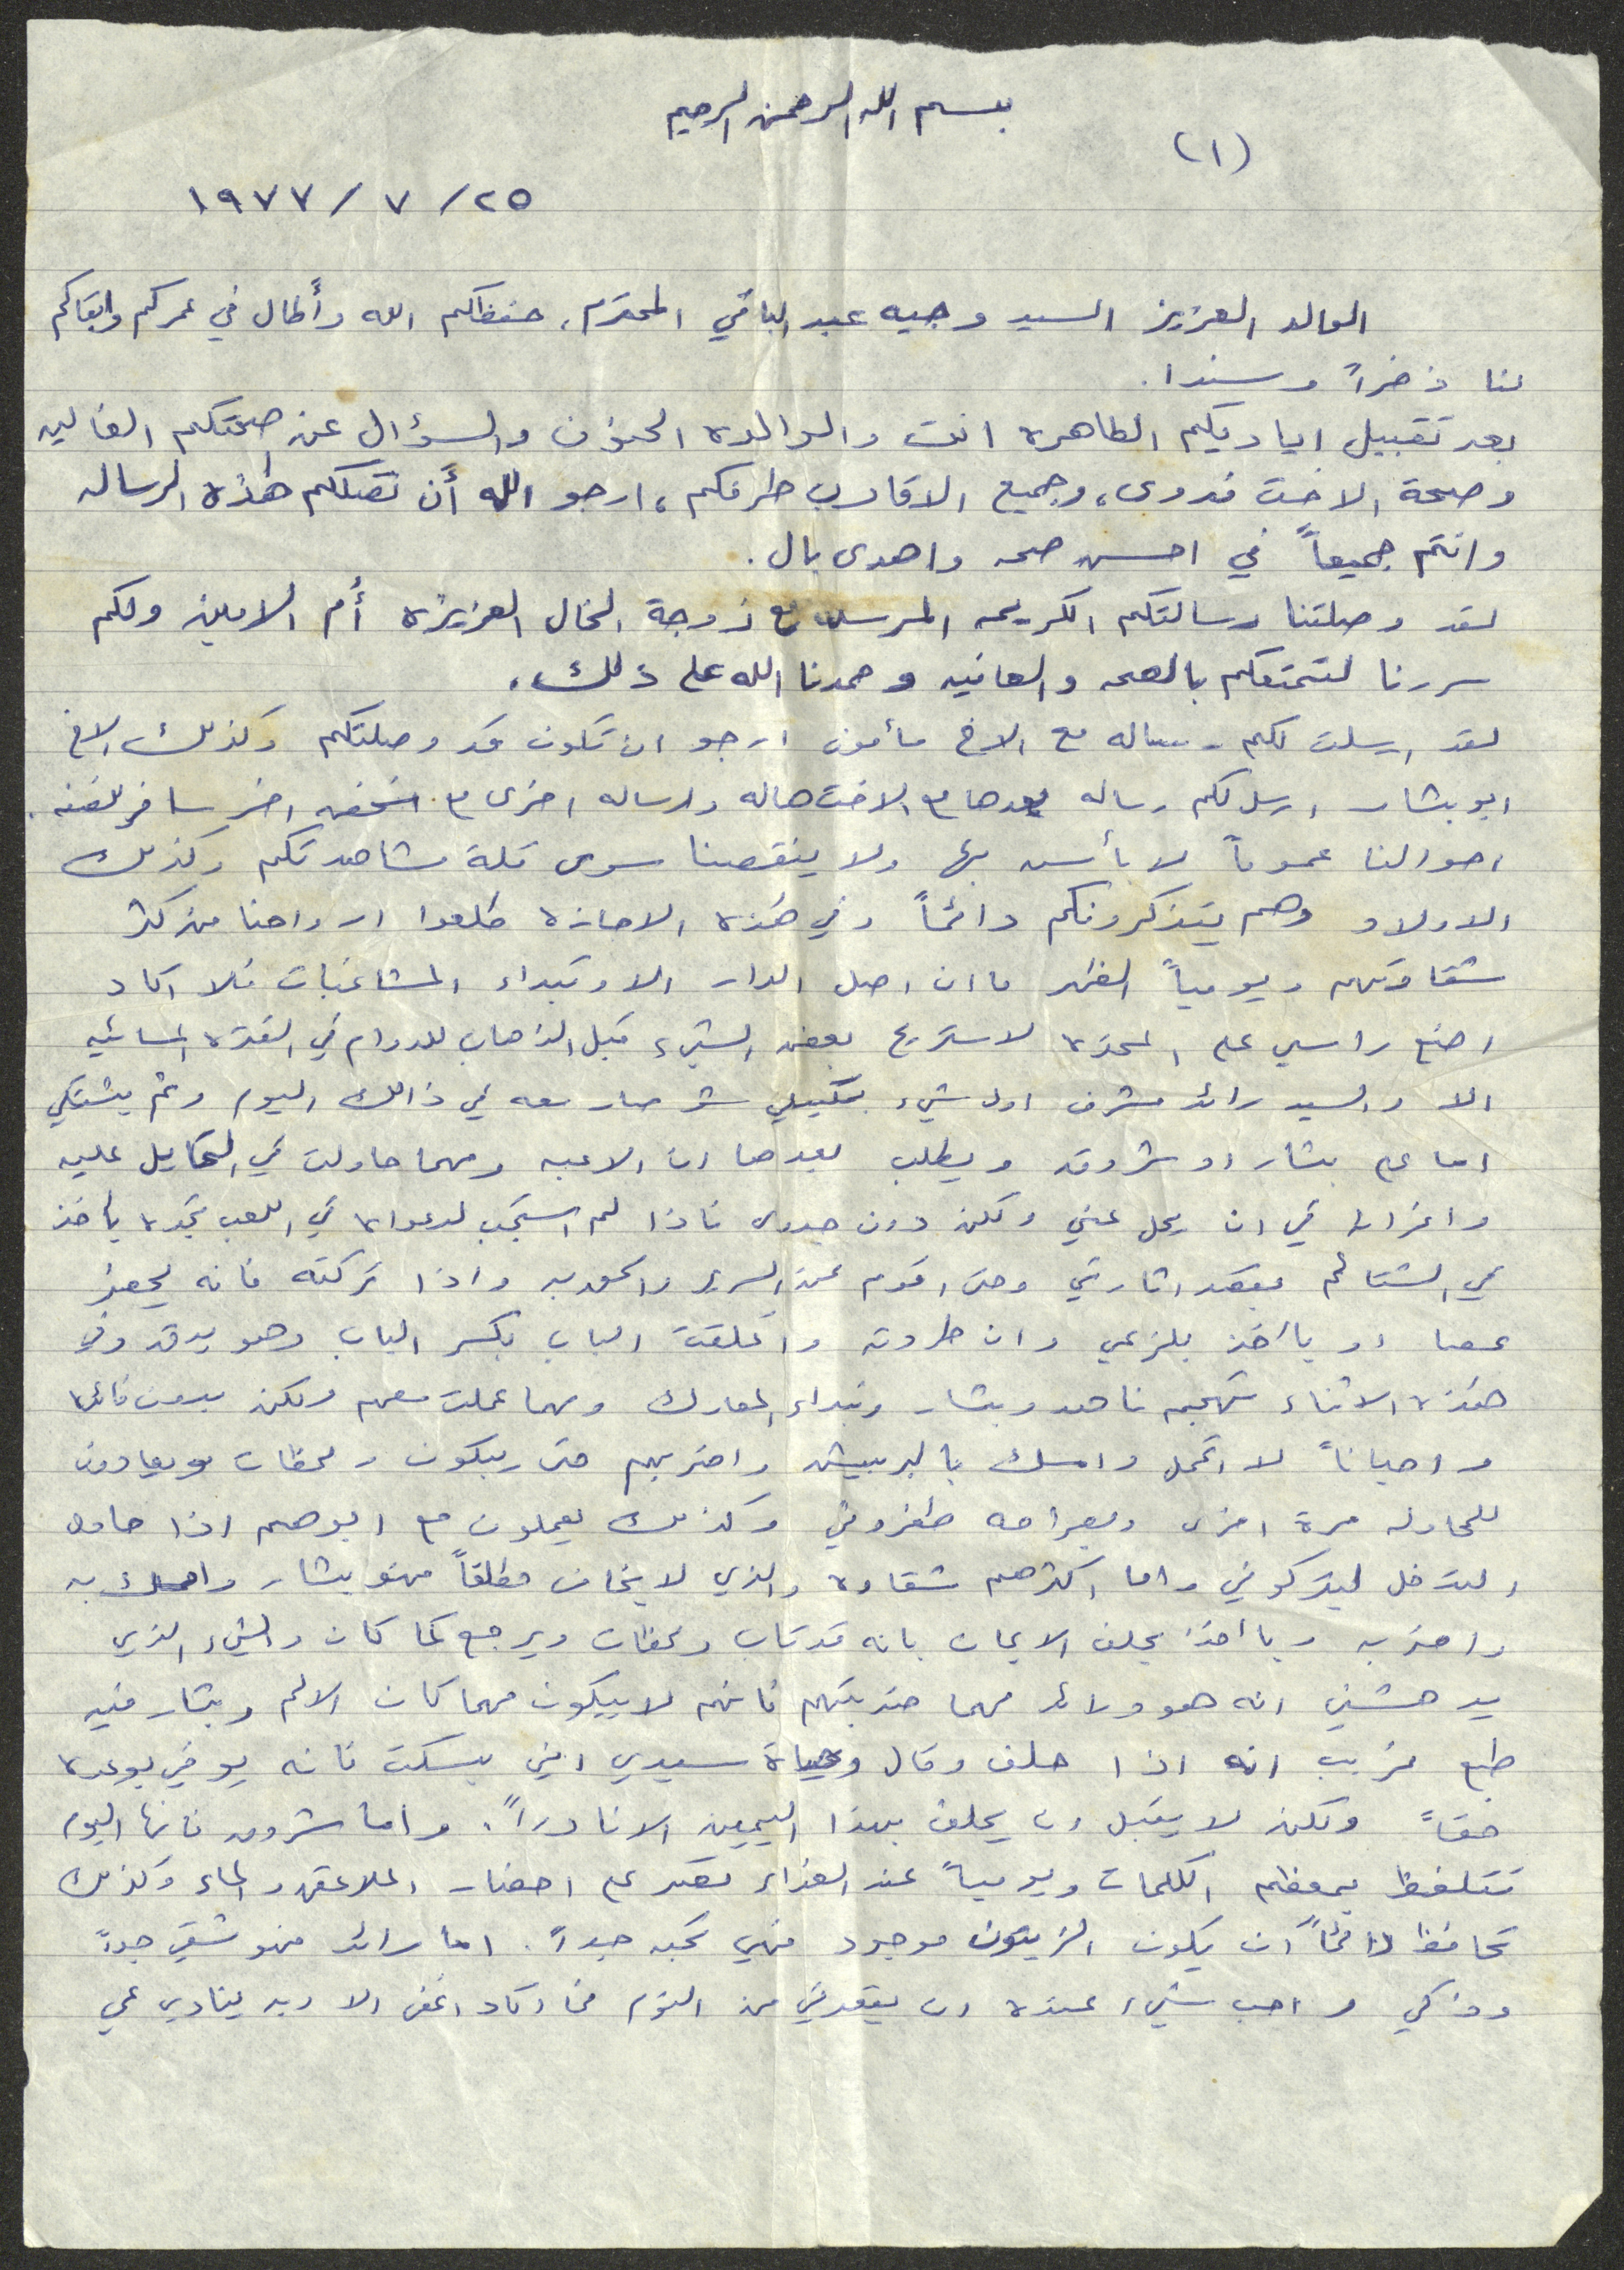 بسم الله الرحمن الرحيم
(١)
٢٥/ ٧ / ١٩٧٧
الوالد العزيز السيد وجيه عبد الباقي المحترم، حفظكم الله وأطال في عمركم وابقاكم
لنا ذخراً وسندا.
بعد تقبيل اياديكم الطاهره انت والوالده الحنون والسؤال عن صحتكم الغاليه
وصحة الاخت فدوى، وجميع الاقارب طرفكم، ارجو الله أن تصلكم هذه الرساله
وانتم جميعاً في احسن صحه واهدى بال.
لقد وصلتنا رسالتكم الكريمه المرسله مع زوجة الخال العزيزه أم الامين ولكم
سررنا لتمتعكم بالصحه والعافيه وحمدنا الله على ذلك.
لقد ارسلت لكم رساله مع الاخ مأمون ارجو ان تكون قد وصلتكم وكذلك الاخ
ابو بشار ارسل لكم رساله بعدها مع الاخت هاله ورساله اخرى مع شخص اخر سافر للضفه.
احوالنا عموماً لا بأس بها ولا ينقصنا سوى قلة مشاهدتكم وكذلك
الاولاد وهم يتذكرونكم دائماً وفي هذه الاجازه طلعوا ارواحنا من كثر
شقاوتهم ويومياً الظهر ما ان اصل الدار الا وتبداء المشاغبات فلا اكاد
اضع راسي على المخده لاستريح بعض الشيء قبل الذهاب للدوام في الفتره المسائيه
الا والسيد رائد مشرف اول شيء بحكيلي شو صار معه في ذالك اليوم وثم يشتكي
اما على بشار او شروق ويطلب بعدها ان الاعبه ومهما حاولت في التحايل عليه
واغرائه في ان يحل عني ولكن دون جدوى فاذا لم استجب لدعواه في اللعب تجده يأخذ
في الشتائم بقصد اثارتي وحتى اقوم عن السرير والحق به واذا تركته فانه يحضر
عصا او يأخذ بلزعي وان طردته واغلقت الباب بكسر الباب وهو يدق وفي
هذه الاثناء تهجم ناهد وبشار وتبداء المعارك ومهما عملت معهم ولكن بدون فائده
واحياناً لا اتحمل وامسك بالبربيش واضربهم حتى يبكون ولحظات ويعاودون
للمحاوله مرة اخرى وبصراحه طفروني وكذلك يعملون مع ابوهم اذا حاول
التدخل ليتركوني واما اكثرهم شقاوه والذي لا يخاف مطلقاً فهو بشار وامسك به
واضربه ويأخذ يحلف الايمان بانه قد تاب ولحظات ويرجع كما كان والشيء الذي
يدهشني انه هو ورائد مهما ضربتهم فانهم لا يبكون مهما كان الالم وبشار فيه
طبع غريب انه اذا حلف وقال وحياة سيدي اني بسكت فانه يوفي بوعده
حقاً ولكن لا يقبل ان يحلف بهذا اليمين الا نادراً. واما شروق فانها اليوم
تتلفظ بمعظم الكلمات ويومياً عند الغذاء تصر على احضار الملاعق والماء وكذلك
تحافظ دائماً أن يكون الزيتون موجود فهي تحبه جداً. اما رائد فهو شقي جداً
وذكي واحب شيء عنده ان يفقدني من النوم فما اكاد اغفى الا وبه ينادي علي